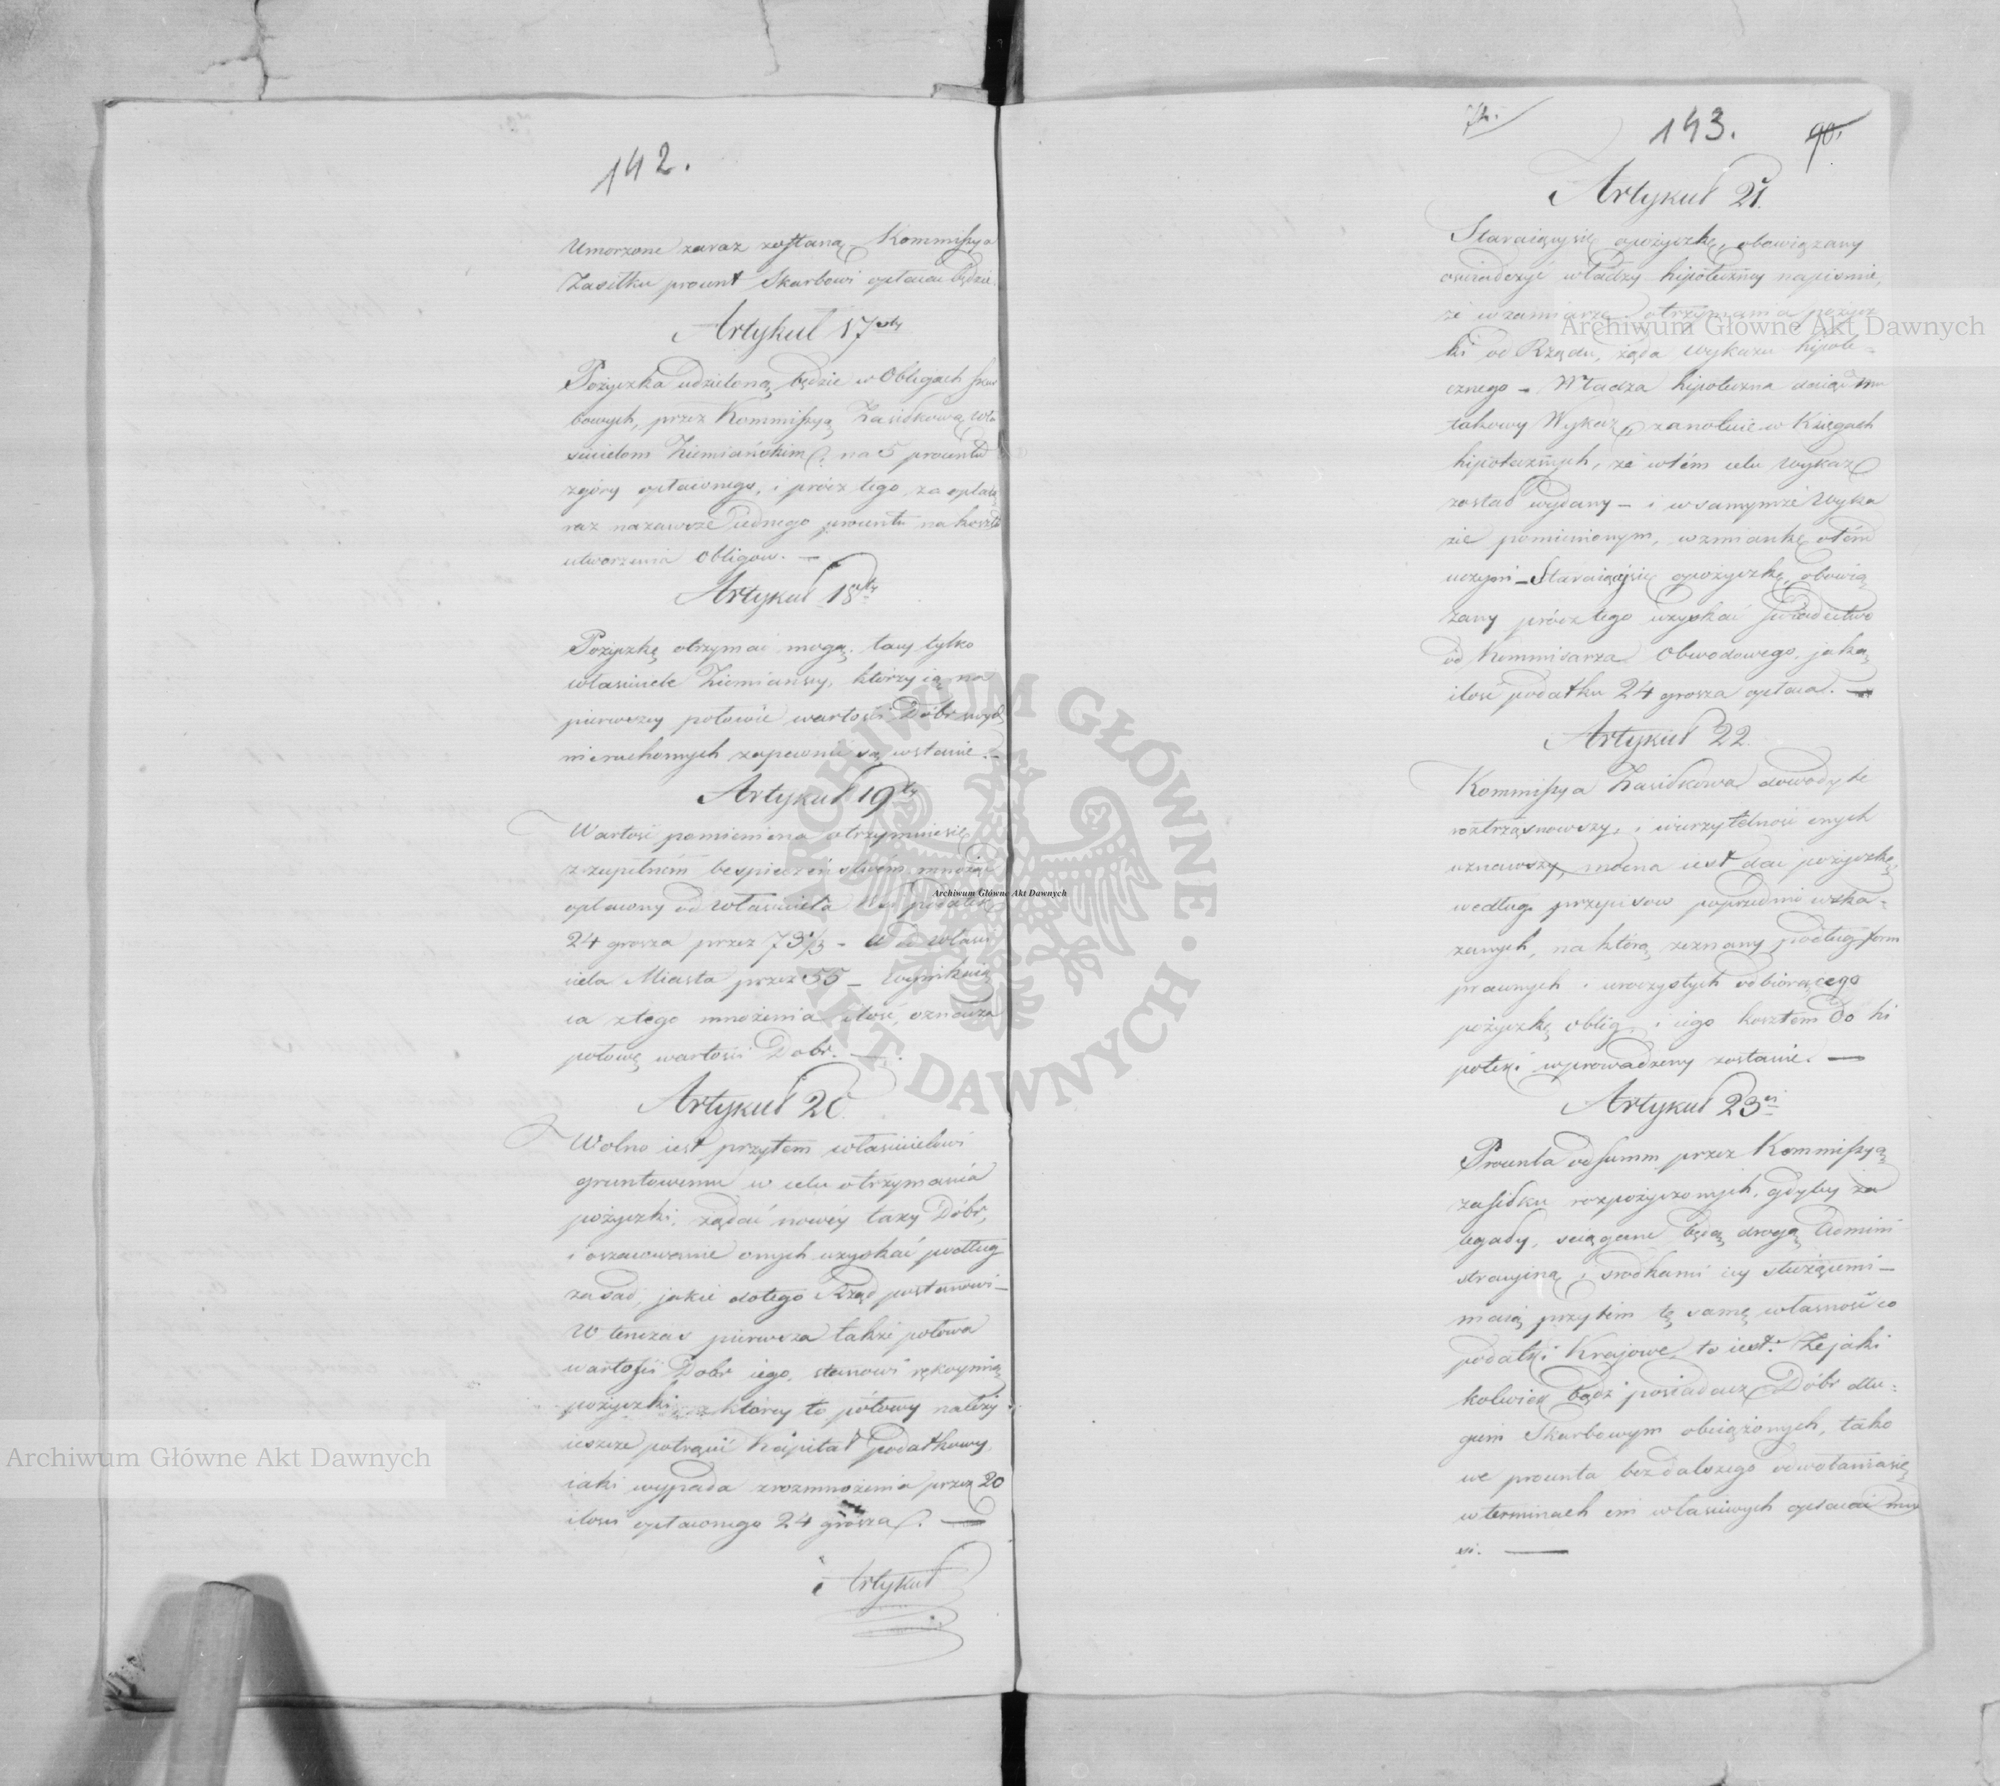 142.
Umorzone zaraz zostaną – Kommissya
Zasiłku procent Skarbowi opłacać będzie.
Artykuł 17sty
Pożyczka udzieloną będzie w Obligach skar
bowych, przez Kommissyą Zasiłkową wła
ścicielom Ziemiańskim, na 5 procentu
zgóry opłaconego, i prócz tego, za opłatą
raz nazawsze iednego procentu na koszta
utworzenia Obligow. —
Artykuł 18sty
Pożyczkę otrzymać mogą, tacy tylko
właściciele Ziemianscy, którzy ią na
pierwszey połowie wartości Dóbr swych
nieruchomych zapewnić są wstanie. –
Artykuł 19sty
Wartość pomieniona otrzymuiesię
z zupełném bespieczeństwém mnożąc
opłacony od Właściciela Wsi podatek
24 grosza przez 73 1/3 – a od właści
ciela Miasta przez 55 – wynikaią
ca ztego mnożenia ilość, oznacza
połowę wartości Dobr. —
Artykuł 20
Wolno iest przytem właścicielowi
gruntowemu w celu otrzymania
pożyczki, żądać nowéy taxy Dóbr,
i oszacowanie onych uzyskać podług
zasad, jakie dotego Rząd postanowi –
W tenczas pierwsza także połowa
wartości Dobr iego, stanowi rękoymią
pożyczki, z którey to połowy należy
ieszcze potrącić Kapitał podatkowy
iaki wypada zrozmnożenia przez 20
ilości opłaconego 24 grosza. —
Artykuł
143.
90.
Artykuł 21.
Staraiącysię opożyczkę, obowiązany
oświadczyć władzy hipoteczney napismie,
że wzamiarze otrzymania pożycz
ki od Rządu, żąda wykazu hipote-
cznego – Władza hipoteczna daiąc mu
takowy Wykaz, zanotuie w Księgach
hipotecznych, że wtém celu wykaz
został wydany – i wsamymże Wyka
zie pomienionym, wzmiankę otém
uczyni – Staraiącysię opożyczkę, obowią
zany prócztego uzyskać świadectwo
od Kommisarza Obwodowego, jaką
ilość podatku 24 grosza opłaca. —
Artykuł 22.
Kommissya Zasiłkowa dowody te
roztrząsnowszy, i wierzytelność onych
uznawszy, mocna iest dać pożyczkę,
według przepisow poprzednio wska-
zanych, na którą zeznany podług form
prawnych i uroczystych odbiorącego
pożyczkę oblig, i iego kosztem do hi
poteki wprowadzony zostanie. —
Artykuł 23ci
Procenta od summ przez Kommissyą
zasiłku rozpożyczonych, gdyby za
legały, sciągane będą drogą Admini
stracyiną i srodkami iey służącemi –
maią przytém tę samę własność co
podatki Krajowe, to iest: Ze jaki
kolwiek bądź posiadacz Dóbr dłu-
giem Skarbowym obciążonych, tako
we procenta bez dalszego odwołaniasię
wterminach im właściwych opłacać mu
si. —